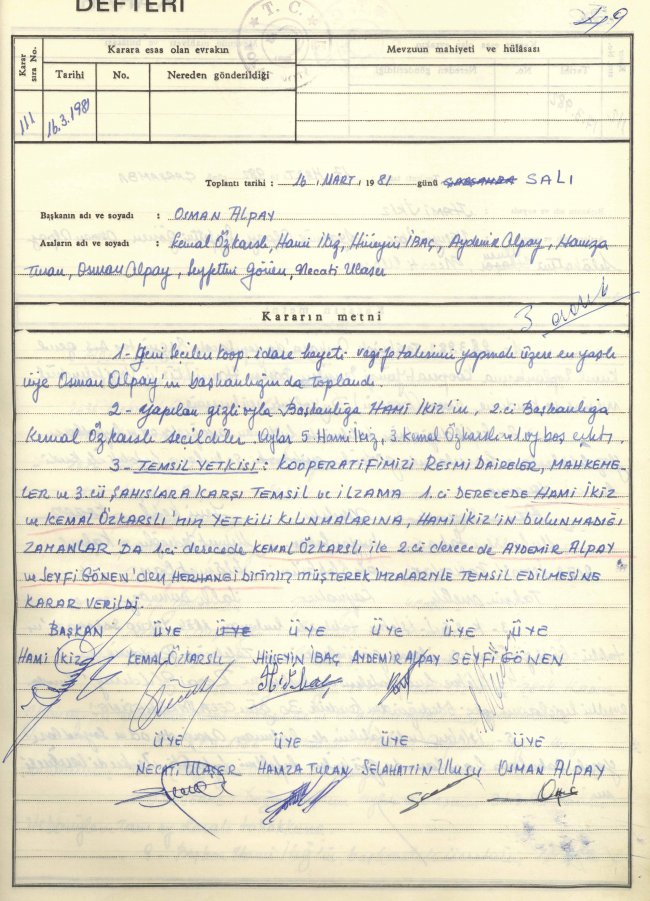 DEFTERİ
49
T. C.
Karar sıra No.
Karara esas olan evrakın
Mevzuun mahiyeti ve hülâsası
Tarihi
No.
Nereden gönderildiği
111
16.3.1981
Toplantı tarihi : 16 MART 1981 günü ÇARŞAMBA SALI
Başkanın adı ve soyadı : OSMAN ALPAY
Azaların adı ve soyadı : Kemal Özkarslı, Hami İkiz, Hüseyin İBAÇ, Aydemir Alpay, Hamza
Turan, Osman Alpay, Seyfettin Gönen, Necati Ulaşer
3
Kararın metni
1- Yeni Seçilen koop. idare heyeti vazife taksimi yapmak üzere en yaşlı
üye Osman Alpay'ın başkanlığında toplandı.
2- Yapılan gizli oyla Başkanlığa HAMİ İKİZ'in, 2.ci Başkanlığa
Kemal Özkarslı seçildiler. Oylar 5 Hami İkiz, 3 Kemal Özkarslı ve 1 oy boş çıktı.
3- TEMSİL YETKİSİ: KOOPERATİFİMİZİ RESMİ DAİRELER, MAHKEME-
LER ve 3.cü ŞAHISLARA KARŞI TEMSİL ve İLZAMA 1.ci DERECEDE HAMİ İKİZ
ve KEMAL ÖZKARSLI'nın YETKİLİ KILINMALARINA, HAMİ İKİZ'İN BULUNMADIĞI
ZAMANLAR'DA 1.ci derecede KEMAL ÖZKARSLI ile 2.ci derecede AYDEMİR ALPAY
ve SEYFİ GÖNEN'den HERHANGİ birinin MÜŞTEREK İMZALARIYLE TEMSİL EDİLMESİNE
KARAR VERİLDİ.
BAŞKAN ÜYE ÜYE ÜYE ÜYE ÜYE ÜYE
HAMİ İKİZ KEMAL ÖZKARSLI HÜSEYİN İBAÇ AYDEMİR ALPAY SEYFİ GÖNEN
H. İbaç
ÜYE ÜYE ÜYE ÜYE
NECATİ ULAŞER HAMZA TURAN SELAHATTİN ULUSU OSMAN ALPAY